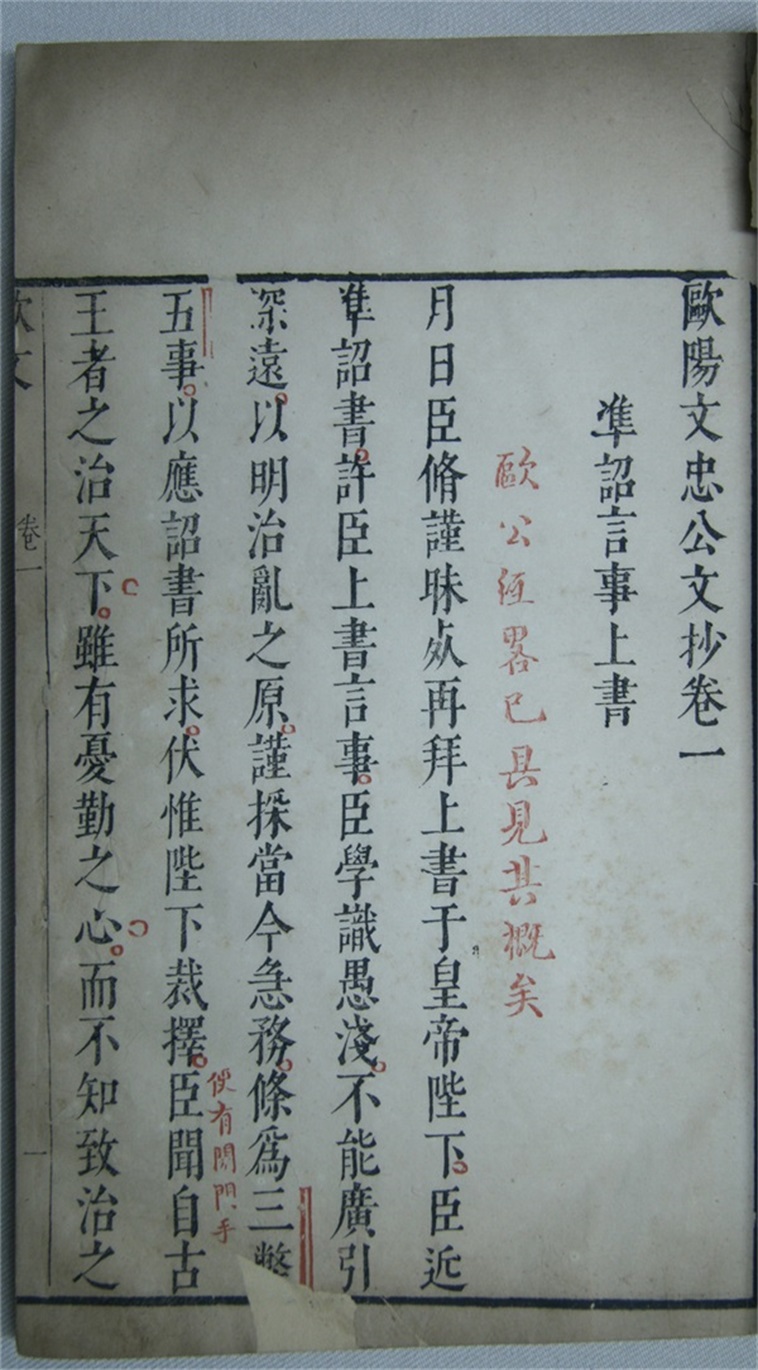 歐陽文忠公文抄卷一
準詔言事上書
歐公經畧已具見其概矣
月日臣脩謹昧死再拜上書于皇帝陛下臣近
準詔書許臣上書言事臣學識愚淺不能廣引
深遠以明治亂之原謹採當今急務條為三弊
五事以應詔書所求伏惟陛下裁擇臣聞自古
便有開門手
王者之治天下雖有憂勤之心而不知致治之
欧文
卷一
一